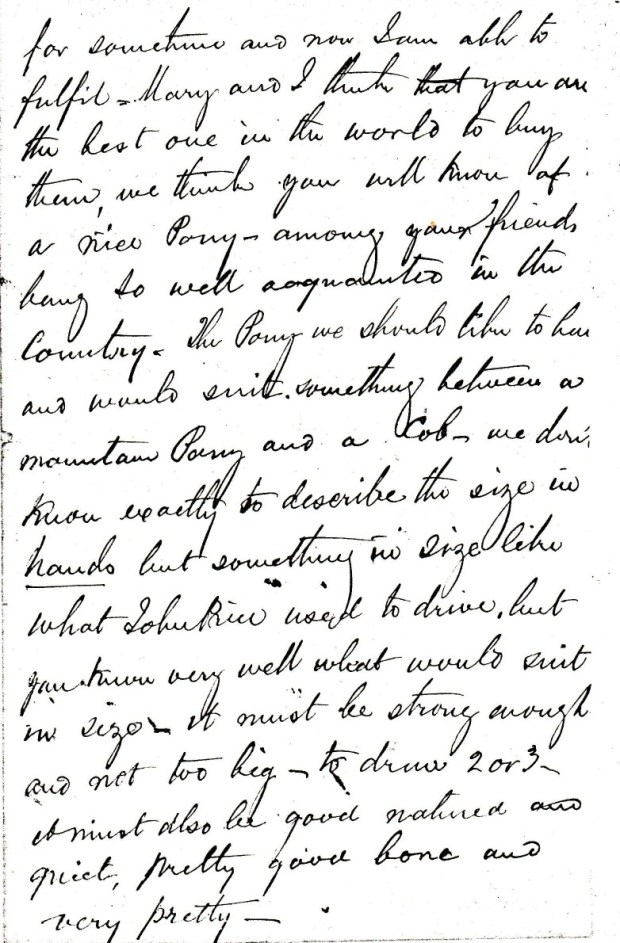 for sometime and now I am able to
fulfil - Mary and I think that you are
the best one in the world to buy
them, we think you will know of
a nice Pony - among your friends
being so well acquainted in the
Country - The Pony we should like to have
and would suit. something between a
mountain Pony and a Cob - we don't
know exactly to describe the size in
hands but something in size like
what John used to drive, but
you know very well what would suit
in size - it must be strong enough
and not too big - to draw 2 or 3 -
it must also be good natured and
quiet, pretty good bone and
very pretty -